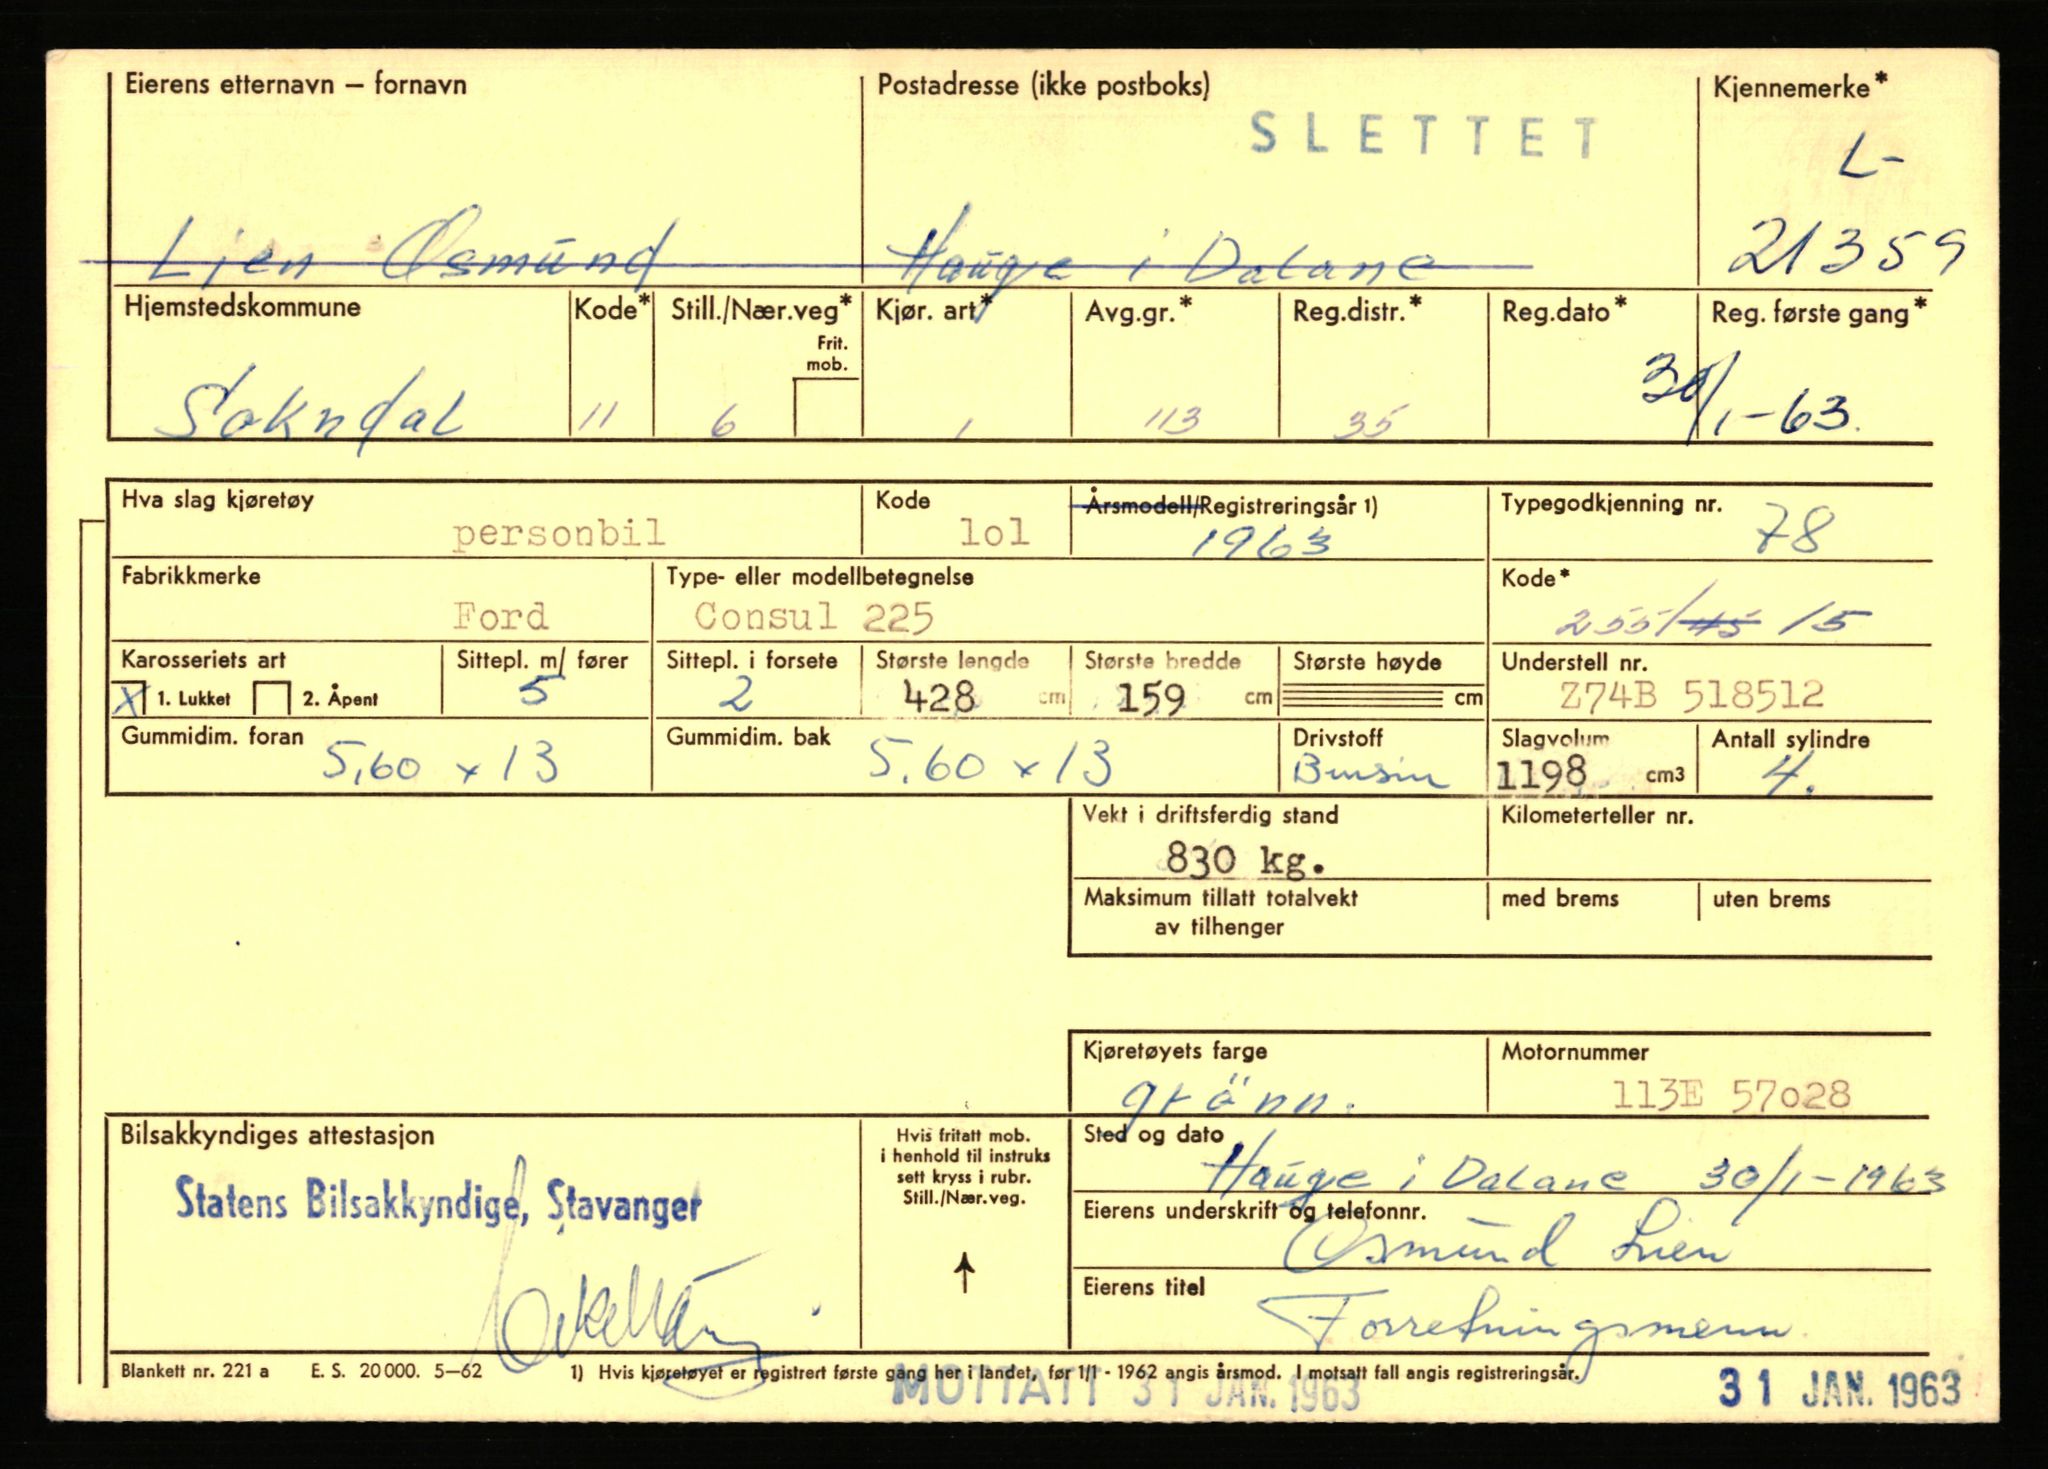 Eierens etternavn – fornavn
Postadresse (ikke postboks)
Kjennemerke*
SLETTET
L-
Lien Osmund
Hauge i Dalane
21359
Hjemstedskommune
Kode*
Still./Nær.veg*
Frit.
mob.
Kjør. art*
Avg.gr.*
Reg.distr.*
Reg.dato*
Reg. første gang*
Sokndal
11
6
1
113
35
30/1-63.
Hva slag kjøretøy
personbil
Kode
lol
Årsmodell/Registreringsår 1)
1963
Typegodkjenning nr.
78
Fabrikkmerke
Ford
Type- eller modellbetegnelse
Consul 225
Kode*
255/45 15
Karosseriets art
X 1. Lukket
2. Åpent
Sittepl. m/ fører
5
Sittepl. i forsete
2
Største lengde
428 cm
Største bredde
159 cm
Største høyde
cm
Understell nr.
Z74B 518512
Gummidim. foran
5,60 x 13
Gummidim. bak
5.60 x 13
Drivstoff
Bensin
Slagvolum
1198 cm3
Antall sylindre
4.
Vekt i driftsferdig stand
830 kg.
Kilometerteller nr.
Maksimum tillatt totalvekt
av tilhenger
med brems
uten brems
Kjøretøyets farge
grönn.
Motornummer
113E 57028
Bilsakkyndiges attestasjon
Statens Bilsakkyndige, Stavanger
Hvis fritatt mob.
i henhold til instruks
sett kryss i rubr.
Still./Nær.veg.
Sted og dato
Hauge i Dalane 30/1-1963
Eierens underskrift og telefonnr.
Osmund Lien
Eierens titel
Forretningsmenn.
Blankett nr. 221 a E. S. 20 000. 5–62
1) Hvis kjøretøyet er registrert første gang her i landet, før 1/1 - 1962 angis årsmod. I motsatt fall angis registreringsår.
MOTTATT 31 JAN. 1963
31 JAN. 1963